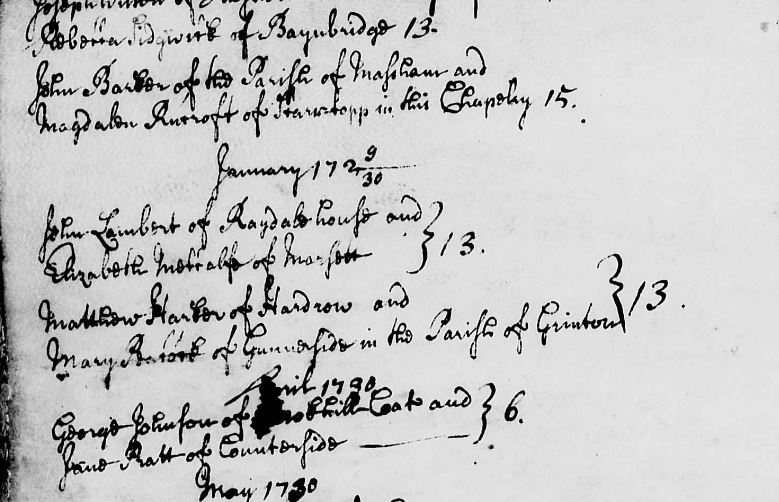 Rebecca Sidgwick of Baynbridge 13.
John Barker of the Parish of Massham and
Magdalen Rucroft of in this Chapelry 15.
January 172 9/30
John Lambert of Raydale house and } 13.
Elizabeth Metcalfe of Marsett
Matthew Harker of Hardrow and } 13.
Mary of Gunnerside in the Parish of Grinton
April 1730
George Johnson of Cote and } 6.
Jane Pratt of Counterside
May 1730